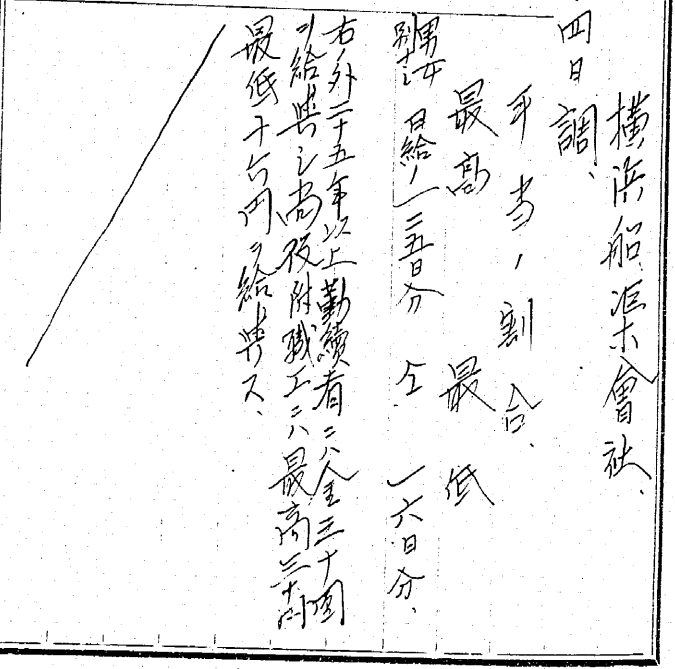 横浜船渠會社、
四日調、
手当ノ割合、
最高 最低
男女別ナシ 日給ノ一二五日分 仝 一六日分、
右ノ外二十五年以上勤續者ニハ金三十圓
ヲ給與シ尚役附職工ニハ最高三十円
最低十六円ヲ給與ス、